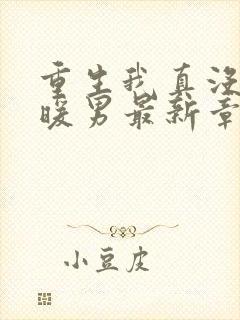 重生我真没
暖男最新章
小豆皮